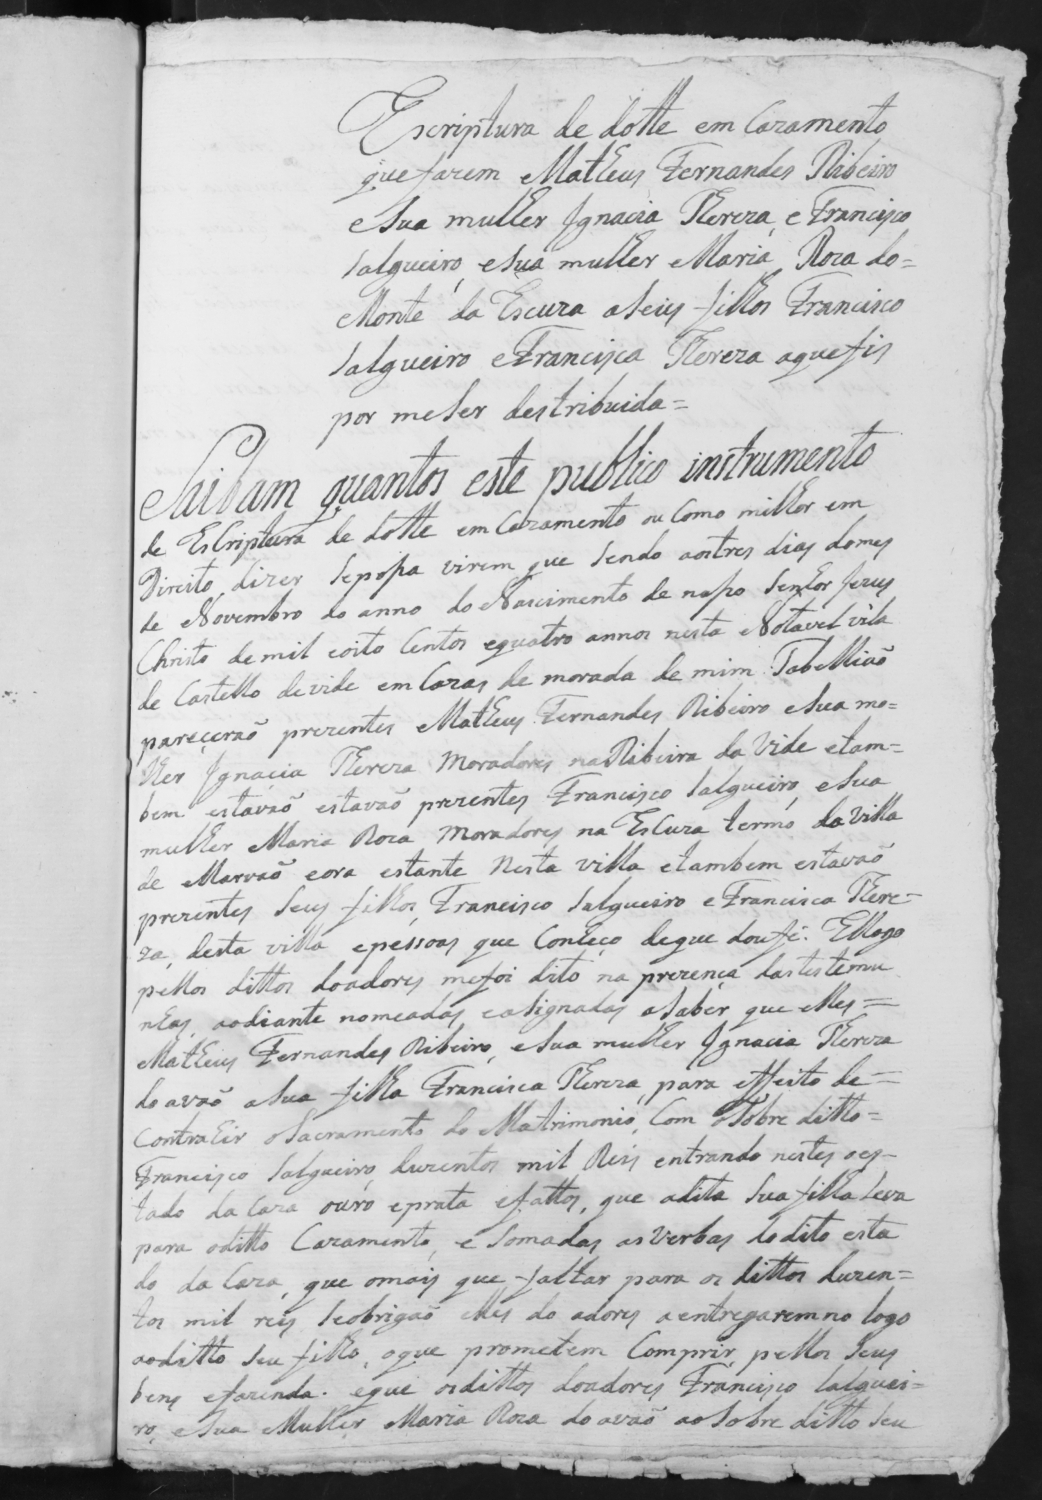 Escriptura de dotte em Cazamento
que fazem Matheus Fernandes Ribeiro
e Sua mulher Ignacia Thereza, e Francisco
Salgueiro, e Sua mulher Maria Roza do=
Monte da Escura a Seus filhos Francisco
Salgueiro e Francisca Thereza aque fis
por me Ser destribuida=
Saibam quantos este publico instrumento
de EsCriptura de dotte em Cazamento ou Como milhor em
Direito dizer Se possa virem que Sendo aos tres dias do mes
de Novembro do anno do Nascimento de nosso Senhor Jezus
Christo de mil e oito Centos e quatro annos nesta Notavel villa
de Castello de vide em Cazas de morada de mim Tabellião
pareçerão prezentes Matheus Fernandes Ribeiro e Sua mo=
lher Ignacia Thereza Moradores na Ribeira da Vide e tam=
bem estavaõ estavaõ prezentes Francisco Salgueiro, e Sua
mulher Maria Roza Moradores na EsCura termo da Villa
de Marvaõ e ora estante Nesta villa e tambem estavaõ
prezentes Seus filhos, Francisco Salgueiro e Francisca There=
za, desta villa e pessoas que Conheço de que dou fé. E llogo
pellos dittos doadores me foi dito na prezença das testemu
nhas, ao diante nomeadas, e asignadas a Saber que elles=
Matheus Fernandes Ribeiro, e Sua mulher Ignacia Thereza
do avaõ a Sua filha Francisca Thereza, para effeito de=
Contrahir o Sacramento do Matrimonio, Com o Sobre ditto=
Francisco Salgueiro, duzentos mil Reis entrando nestes o es=
tado da Caza ouro e prata e fattos, que a dita Sua filha Leva
para o ditto Cazamento, e Somadas as Verbas do dito esta
do da Caza, que o mais que faltar para os dittos duzen=
tos mil reis Se obrigaõ elles do adores a entregarem no logo
ao ditto Seu filho, o que prometem Comprir, pellos Seus
bens e fazenda. e que os dittos doadores Francisco Salguei=
ro, e Sua Mulher Maria Roza do avaõ ao Sobre ditto Seu